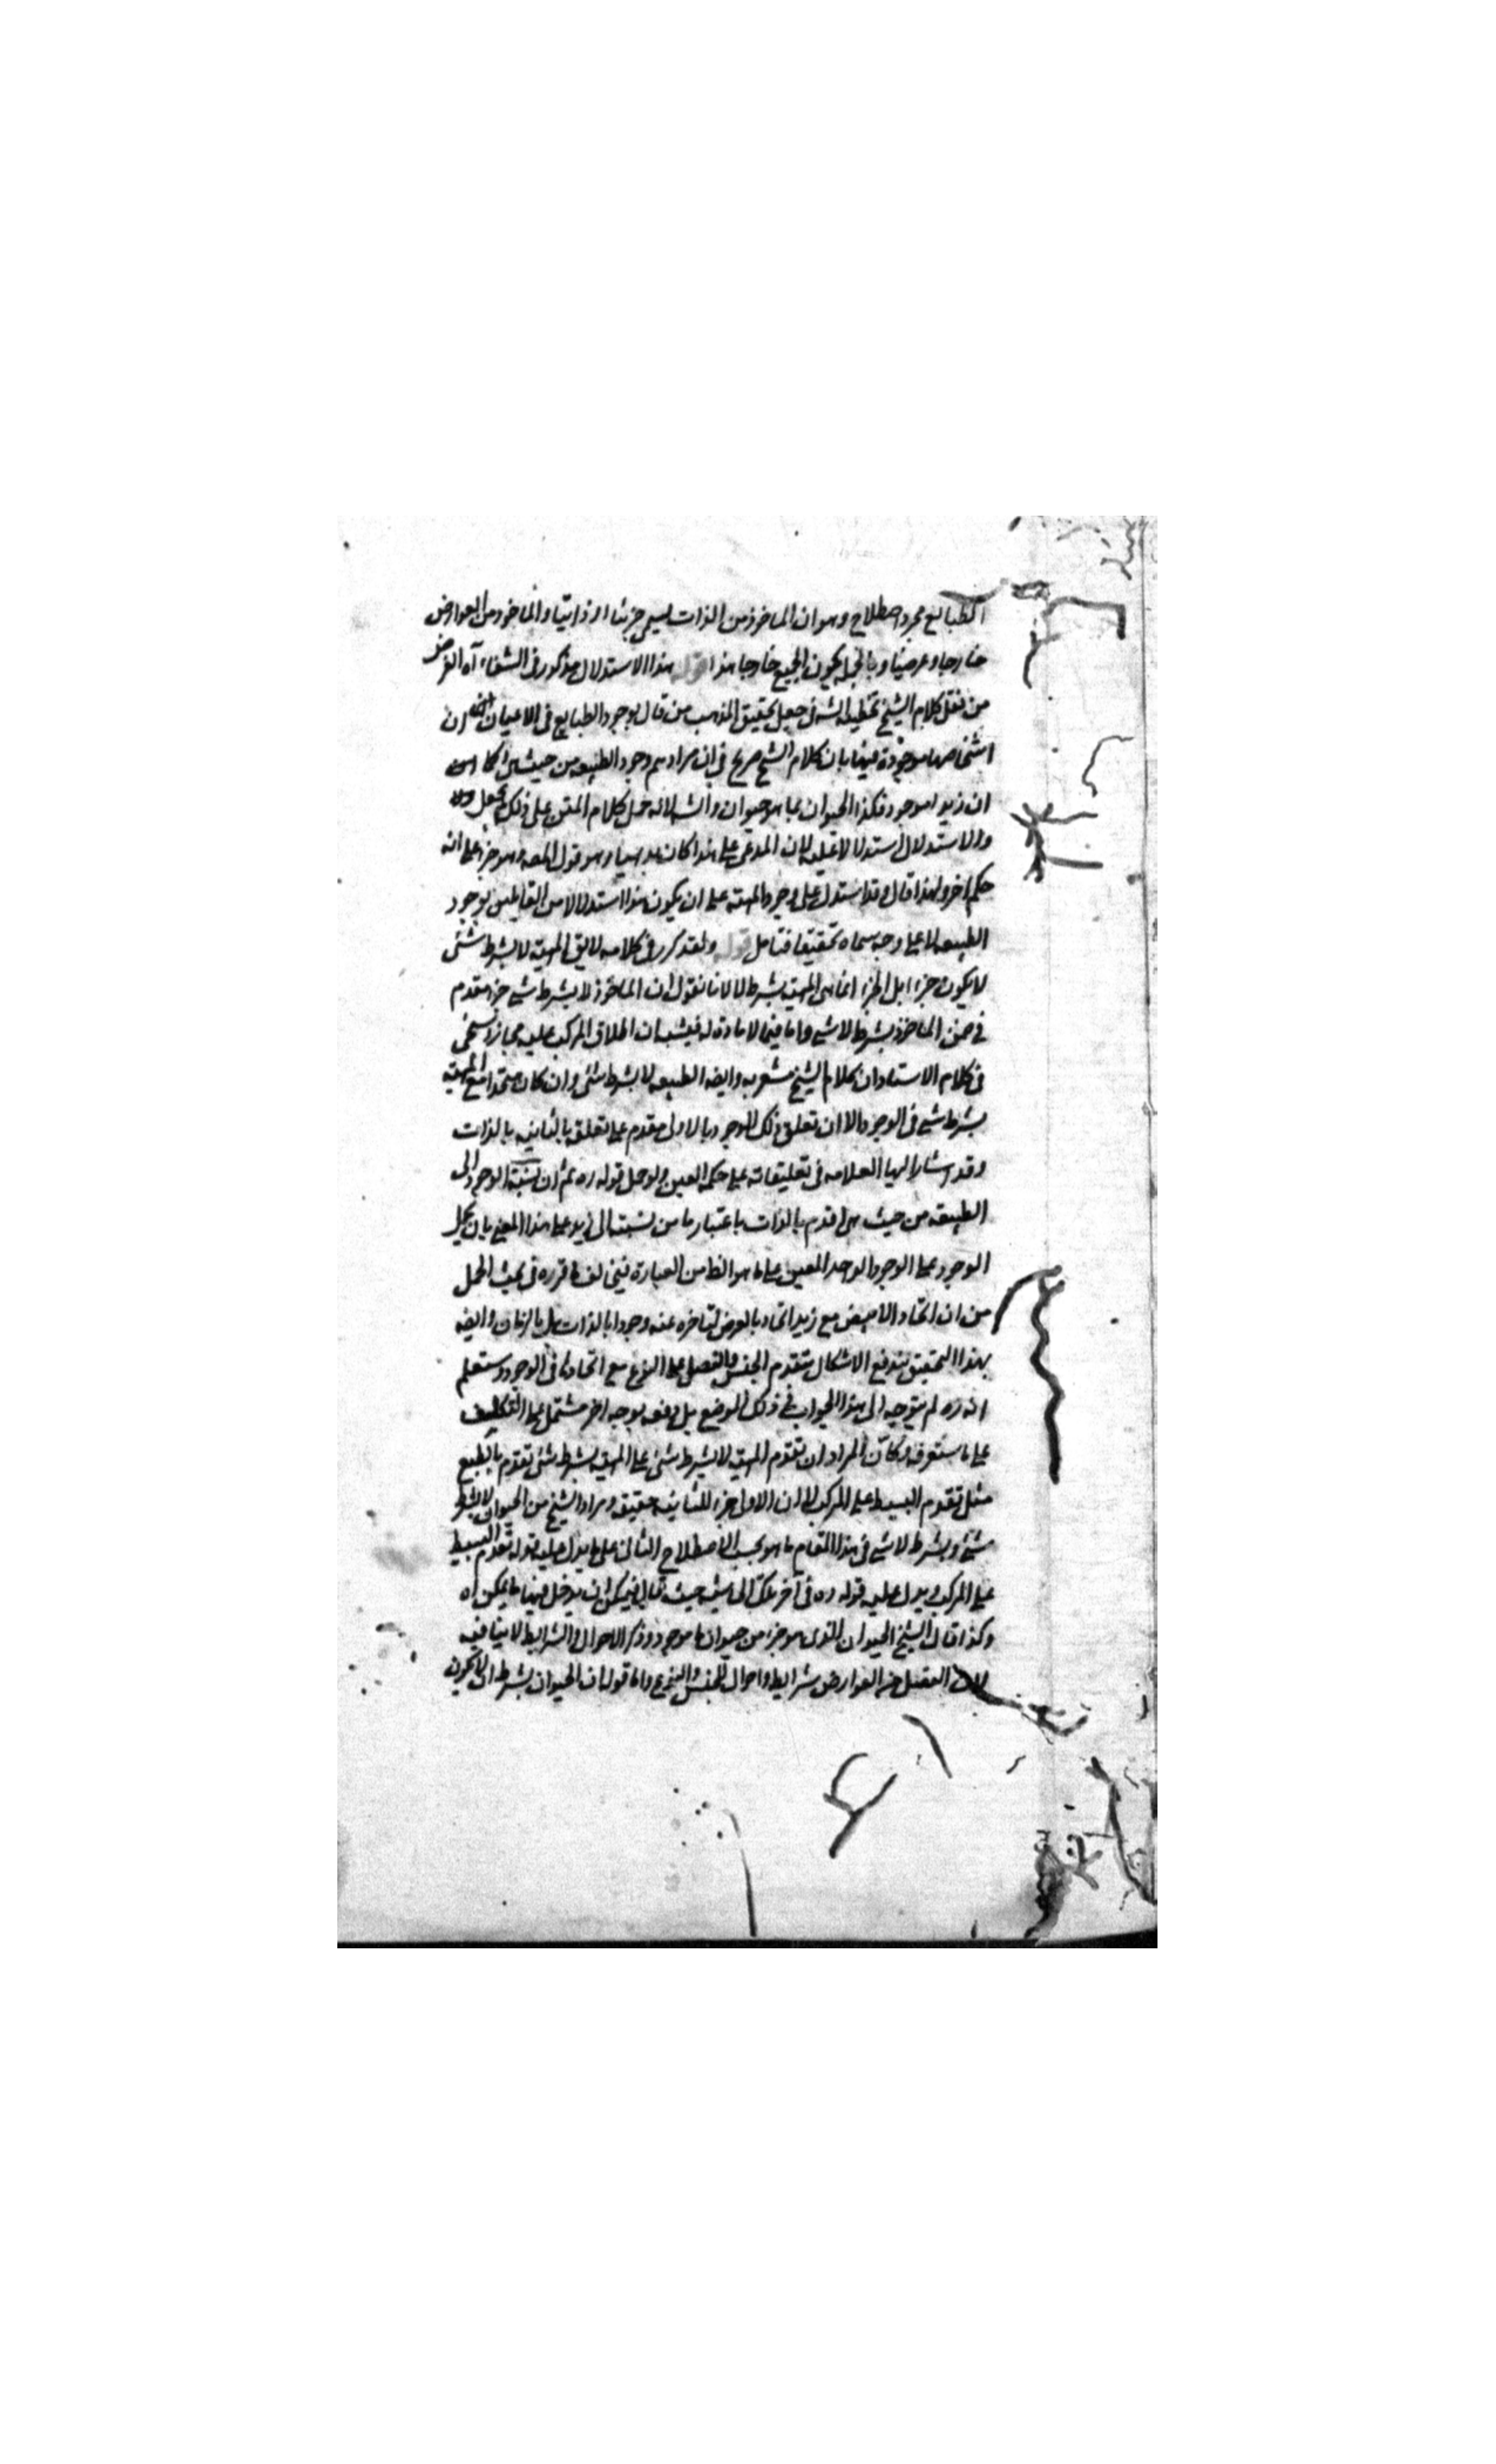 الطبايع مجرد اصطلاح وهو ان الماخوذ من الذات يسمى جزئا او ذاتيا والماخوذ من العوارض
خارجا وعرضيا وبالجمله يكون الجميع خارجا هذا قوله هذا الاستدلال مذكور فى الشفاء آه الغرض
من نقل كلام الشيخ تخطيه الشه فى جعل تحقيق المذهب من قال بوجود الطبايع فى الاعيان ان
اشخاصها موجودة فيها بان كلام الشيخ صريح فى ان مرادهم وجود الطبيعه من حيث هى كما
ان زيدا موجود فكذا الحيوان بما هو حيوان والشه لانه حمل كلام المتن على ذلك
والاستدلال استدلالا عليه لان المدعى على هذا كان بديهيا وهو قول المصه وهو جزء على انه
حكم اخر ولهذا قال وقد استدل على وجود المهيته على ان يكون هذا استدلالا من القايلين بوجود
الطبيعه لا على وجه سماه تحقيقا فتامل قوله ولقد كرر فى كلامه لا يق المهية لا بشرط شئ
لا يكون جزءا بل الجزء انما هى المهية بشرط لا لانا نقول ان الماخوذ لا بشرط شئ جزء مقدم
فى ضمن الماخوذ بشرط لا شئ واما فيما لا مادة له فيشبه ان اطلاق المركب عليه مجاز وسيجئ
فى كلام الاستاد ان كلام الشيخ مشعر به وايضه الطبيعه لا بشرط شئ وان كان متحدا مع المهية
بشرط شئ فى الوجود الا ان تعلق ذلك الوجود بالاولى مقدم على تعلقه بالثانيه بالذات
وقد اشار اليها العلامه فى تعليقاته على حكمه العين ولو حمل قوله ره ثم ان نسبة الوجود الى
الطبيعه من حيث هى اقدم بالذات باعتبار ما من نسبته الى زيد على هذا المعنى بان يحمل
الوجود على الوجود الواحد المعين على ما هو الظا من العبارة فيخالف ما قرره فى بحث الحمل
من ان اتحاد الابيض مع زيد اتحاد بالعرض لتاخره عنه وجودا بالذات بل بالزمان وايضه
بهذا التحقيق يندفع الاشكال بتقدم الجنس والفصل على النوع مع اتحادها فى الوجود وستعلم
انه ره لم يتوجه الى هذا الجواب فى ذلك الموضع بل دفعه بوجه اخر مشتمل على التكليف
على ما ستعرفه وكان المراد ان تقدم المهية لا بشرط شئ على المهية بشرط شئ تقدم بالطبع
مثل تقدم البسيط على المركب لا ان الاولى جزء للثانيه حقيقه ومراد الشيخ من الحيوان لا بشرط
شئ وبشرط لا شئ فى هذا المقام ما هو بحسب الاصطلاح الثانى على ما يدل عليه قوله تقدم البسيط
على المركب ويدل عليه قوله ره فى آخر تلك الحاشيه حيث قال فيمكن ان يدخل فيها ما يمكن اه
وكذا قال الشيخ الحيوان الذى هو جزء من حيوان ما موجود وذكر الاحوال والشرايط لا ينافيه
لان الفصل من العوارض شرايط واحوال للجنس والنوع واما قوله ان الحيوان بشرط ان لا يكون